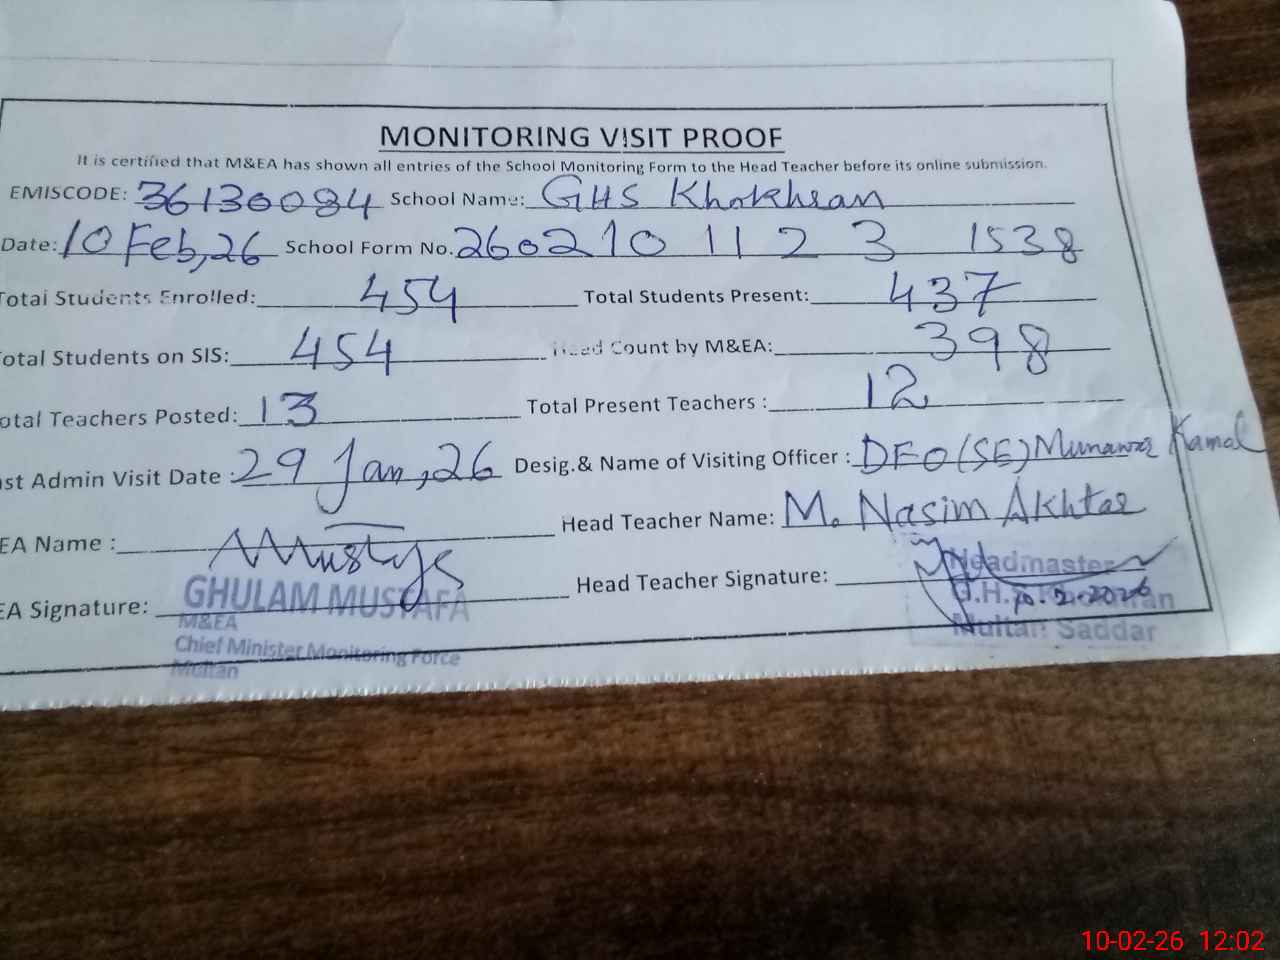 MONITORING VISIT PROOF
It is certified that M&EA has shown all entries of the School Monitoring Form to the Head Teacher before its online submission.
EMISCODE: 36130084 School Name: GHS Khokhran
Date: 10 Feb, 26 School Form No. 260210 11 2 3 1538
Total Students Enrolled: 454 Total Students Present: 437
otal Students on SIS: 454 Head Count by M&EA: 398
otal Teachers Posted: 13 Total Present Teachers : 12
st Admin Visit Date : 29 Jan, 26 Desig.& Name of Visiting Officer : DEO (SE) Munawar Kamal
EA Name : Head Teacher Name: M. Nasim Akhtar
EA Signature: Head Teacher Signature:
GHULAM MUSTAFA
M&EA
Chief Minister Monitoring Force
Multan
Headmaster
G.H.S Khokhran
10.2.2026
Multan Saddar
10-02-26 12:02